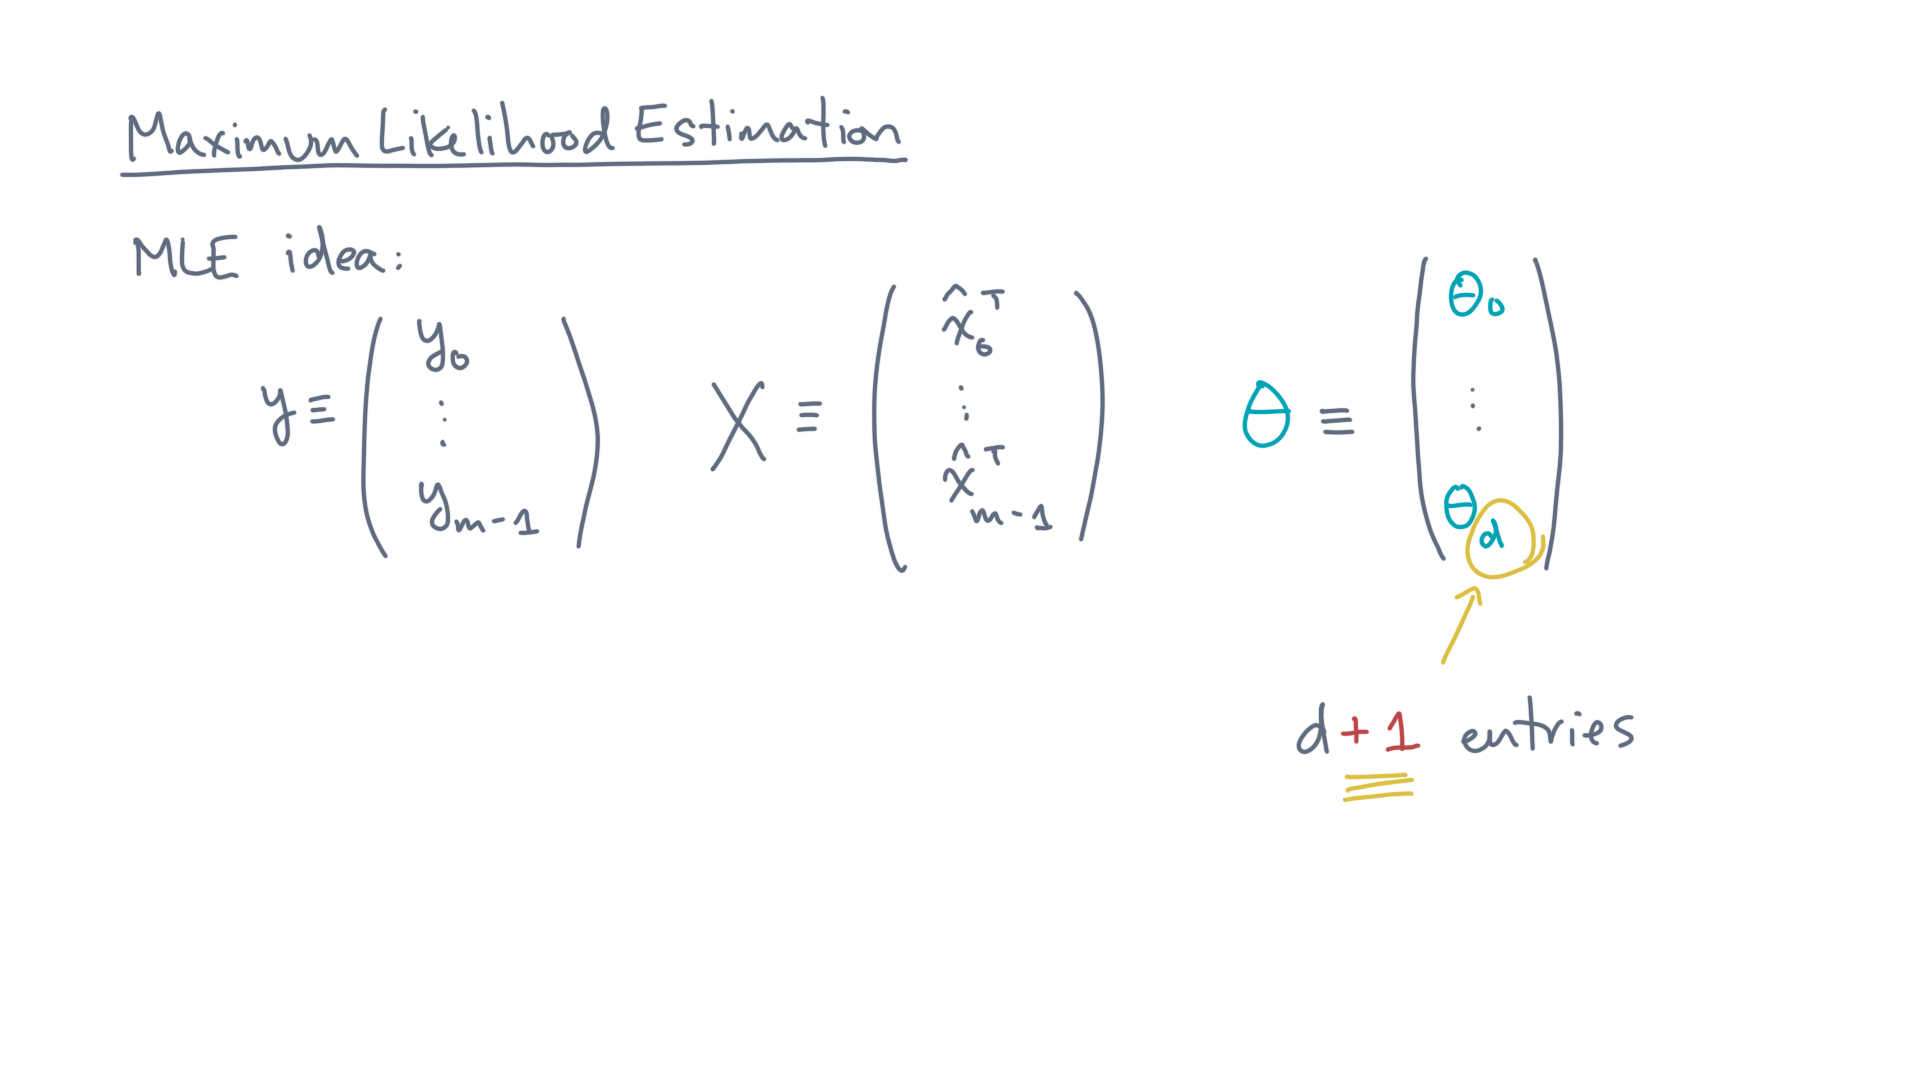 Maximum Likelihood Estimation
MLE idea:
y ≡ ( y₀ ⋮ yₘ₋₁ ) X ≡ ( x̂₀ᵀ ⋮ x̂ₘ₋₁ᵀ ) θ ≡ ( θ₀ ⋮ θ_d )
d + 1 entries